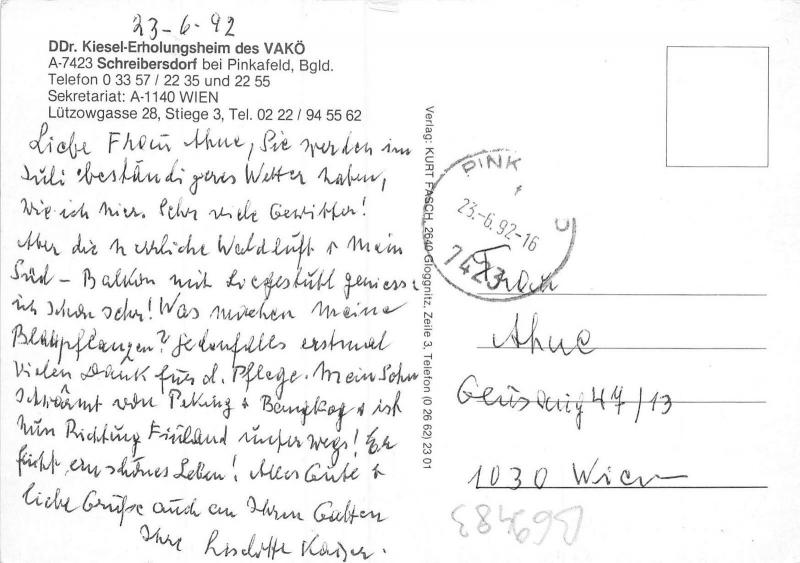 23-6-92
DDr. Kiesel-Erholungsheim des VAKÖ
A-7423 Schreibersdorf bei Pinkafeld, Bgld.
Telefon 0 33 57 / 22 35 und 22 55
Sekretariat: A-1140 WIEN
Lützowgasse 28, Stiege 3, Tel. 02 22 / 94 55 62
Liebe Frau Ahne, Sie werden im
Juli beständigeres Wetter haben,
wie ich hier. Sehr viele Gewitter!
Aber die herrliche Waldluft + mein
Süd - Balkon mit Liegestuhl geniesse
ich schon sehr! Was machen meine
Blattpflanzen? Jedenfalls erstmal
vielen Dank für d. Pflege. Mein Sohn
schwärmt von Peking + Bangkog + ist
nun Richtung Finland unterwegs! Er
führt ein schönes Leben! Alles Gute +
liebe Grüße auch an Ihren Gatten
Ihre Liselotte Kaiser.
Verlag: KURT FASCH, 2640 Gloggnitz, Zeile 3, Telefon (0 26 62) 23 01
PINK
23.-6.92-16
7423
Frau
Ahne
47/13
1030 Wien
B69483